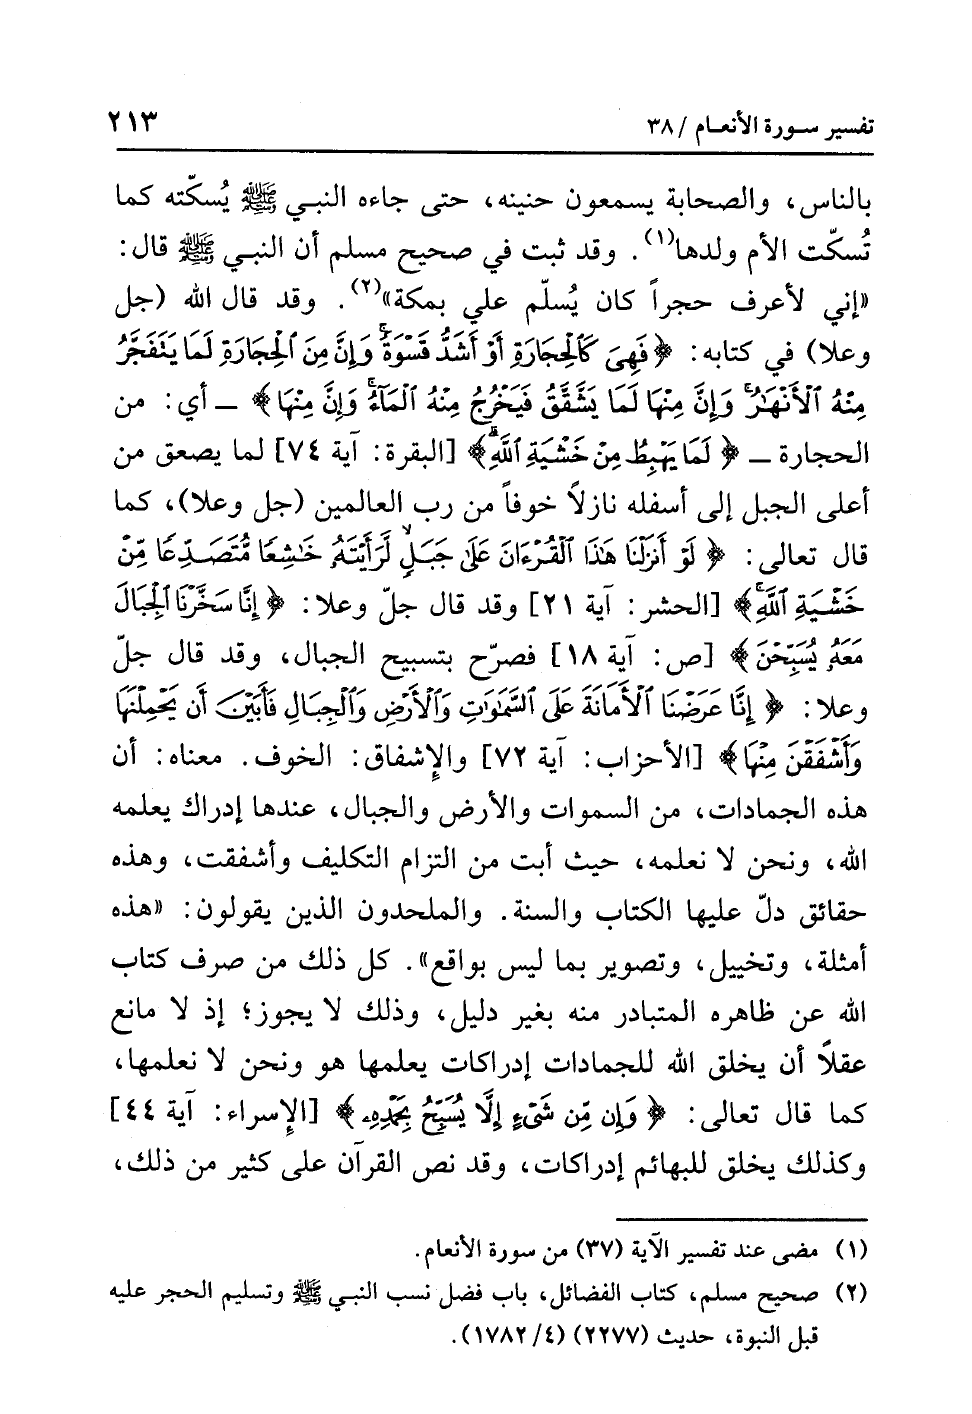 تفسير سورة الأنعام / ٣٨
٢١٣
بالناس، والصحابة يسمعون حنينه، حتى جاءه النبي ﷺ يُسكّته كما
تُسكّت الأم ولدها(١). وقد ثبت في صحيح مسلم أن النبي ﷺ قال:
«إني لأعرف حجراً كان يُسلّم علي بمكة»(٢). وقد قال الله (جل
وعلا) في كتابه: ﴿فَهِىَ كَٱلْحِجَارَةِ أَوْ أَشَدُّ قَسْوَةًۚ وَإِنَّ مِنَ ٱلْحِجَارَةِ لَمَا يَتَفَجَّرُ
مِنْهُ ٱلْأَنْهَٰرُۚ وَإِنَّ مِنْهَا لَمَا يَشَّقَّقُ فَيَخْرُجُ مِنْهُ ٱلْمَآءُۚ وَإِنَّ مِنْهَا﴾ ــ أي: من
الحجارة ــ ﴿لَمَا يَهْبِطُ مِنْ خَشْيَةِ ٱللَّهِۗ﴾ [البقرة: آية ٧٤] لما يصعق من
أعلى الجبل إلى أسفله نازلاً خوفاً من رب العالمين (جل وعلا)، كما
قال تعالى: ﴿لَوْ أَنزَلْنَا هَٰذَا ٱلْقُرْءَانَ عَلَىٰ جَبَلٍ لَّرَأَيْتَهُۥ خَٰشِعًا مُّتَصَدِّعًا مِّنْ
خَشْيَةِ ٱللَّهِۚ﴾ [الحشر: آية ٢١] وقد قال جلّ وعلا: ﴿إِنَّا سَخَّرْنَا ٱلْجِبَالَ
مَعَهُۥ يُسَبِّحْنَ﴾ [ص: آية ١٨] فصرّح بتسبيح الجبال، وقد قال جلّ
وعلا: ﴿إِنَّا عَرَضْنَا ٱلْأَمَانَةَ عَلَى ٱلسَّمَٰوَٰتِ وَٱلْأَرْضِ وَٱلْجِبَالِ فَأَبَيْنَ أَن يَحْمِلْنَهَا
وَأَشْفَقْنَ مِنْهَا﴾ [الأحزاب: آية ٧٢] والإشفاق: الخوف. معناه: أن
هذه الجمادات، من السموات والأرض والجبال، عندها إدراك يعلمه
الله، ونحن لا نعلمه، حيث أبت من التزام التكليف وأشفقت، وهذه
حقائق دلّ عليها الكتاب والسنة. والملحدون الذين يقولون: «هذه
أمثلة، وتخييل، وتصوير بما ليس بواقع». كل ذلك من صرف كتاب
الله عن ظاهره المتبادر منه بغير دليل، وذلك لا يجوز؛ إذ لا مانع
عقلاً أن يخلق الله للجمادات إدراكات يعلمها هو ونحن لا نعلمها،
كما قال تعالى: ﴿وَإِن مِّن شَىْءٍ إِلَّا يُسَبِّحُ بِحَمْدِهِۦ﴾ [الإسراء: آية ٤٤]
وكذلك يخلق للبهائم إدراكات، وقد نص القرآن على كثير من ذلك،
(١) مضى عند تفسير الآية (٣٧) من سورة الأنعام.
(٢) صحيح مسلم، كتاب الفضائل، باب فضل نسب النبي ﷺ وتسليم الحجر عليه
قبل النبوة، حديث (٢٢٧٧) (٤/ ١٧٨٢).